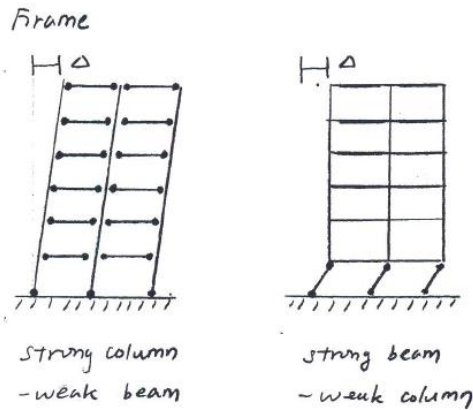 Frame
Δ
Δ
strong column
-weak beam
strong beam
- weak column